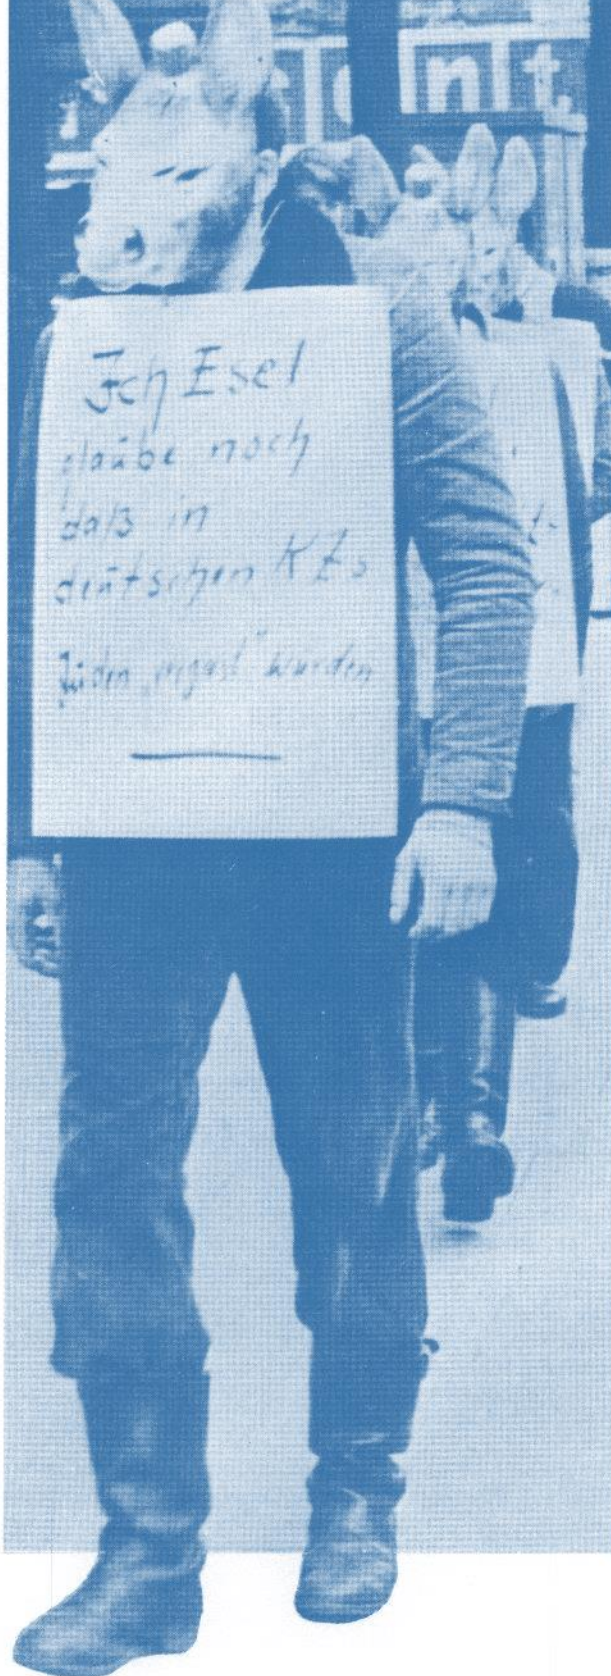 ant
Ich Esel
glaube noch
daß in
deutschen KZs
Juden „vergast" wurden